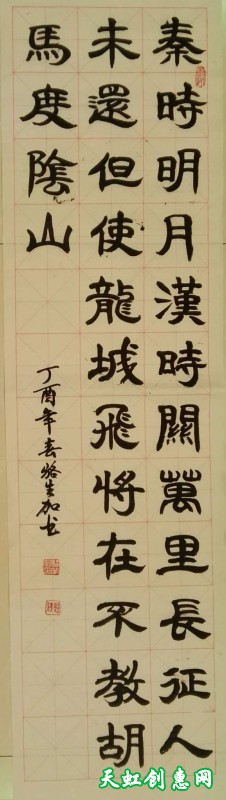 秦時明月漢時關萬里長征人
未還但使龍城飛將在不教胡
馬度陰山
丁酉年春生加书
天虹创惠网